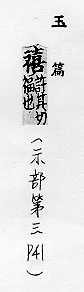 玉篇
禧許其切
福也
(示部第三P41)